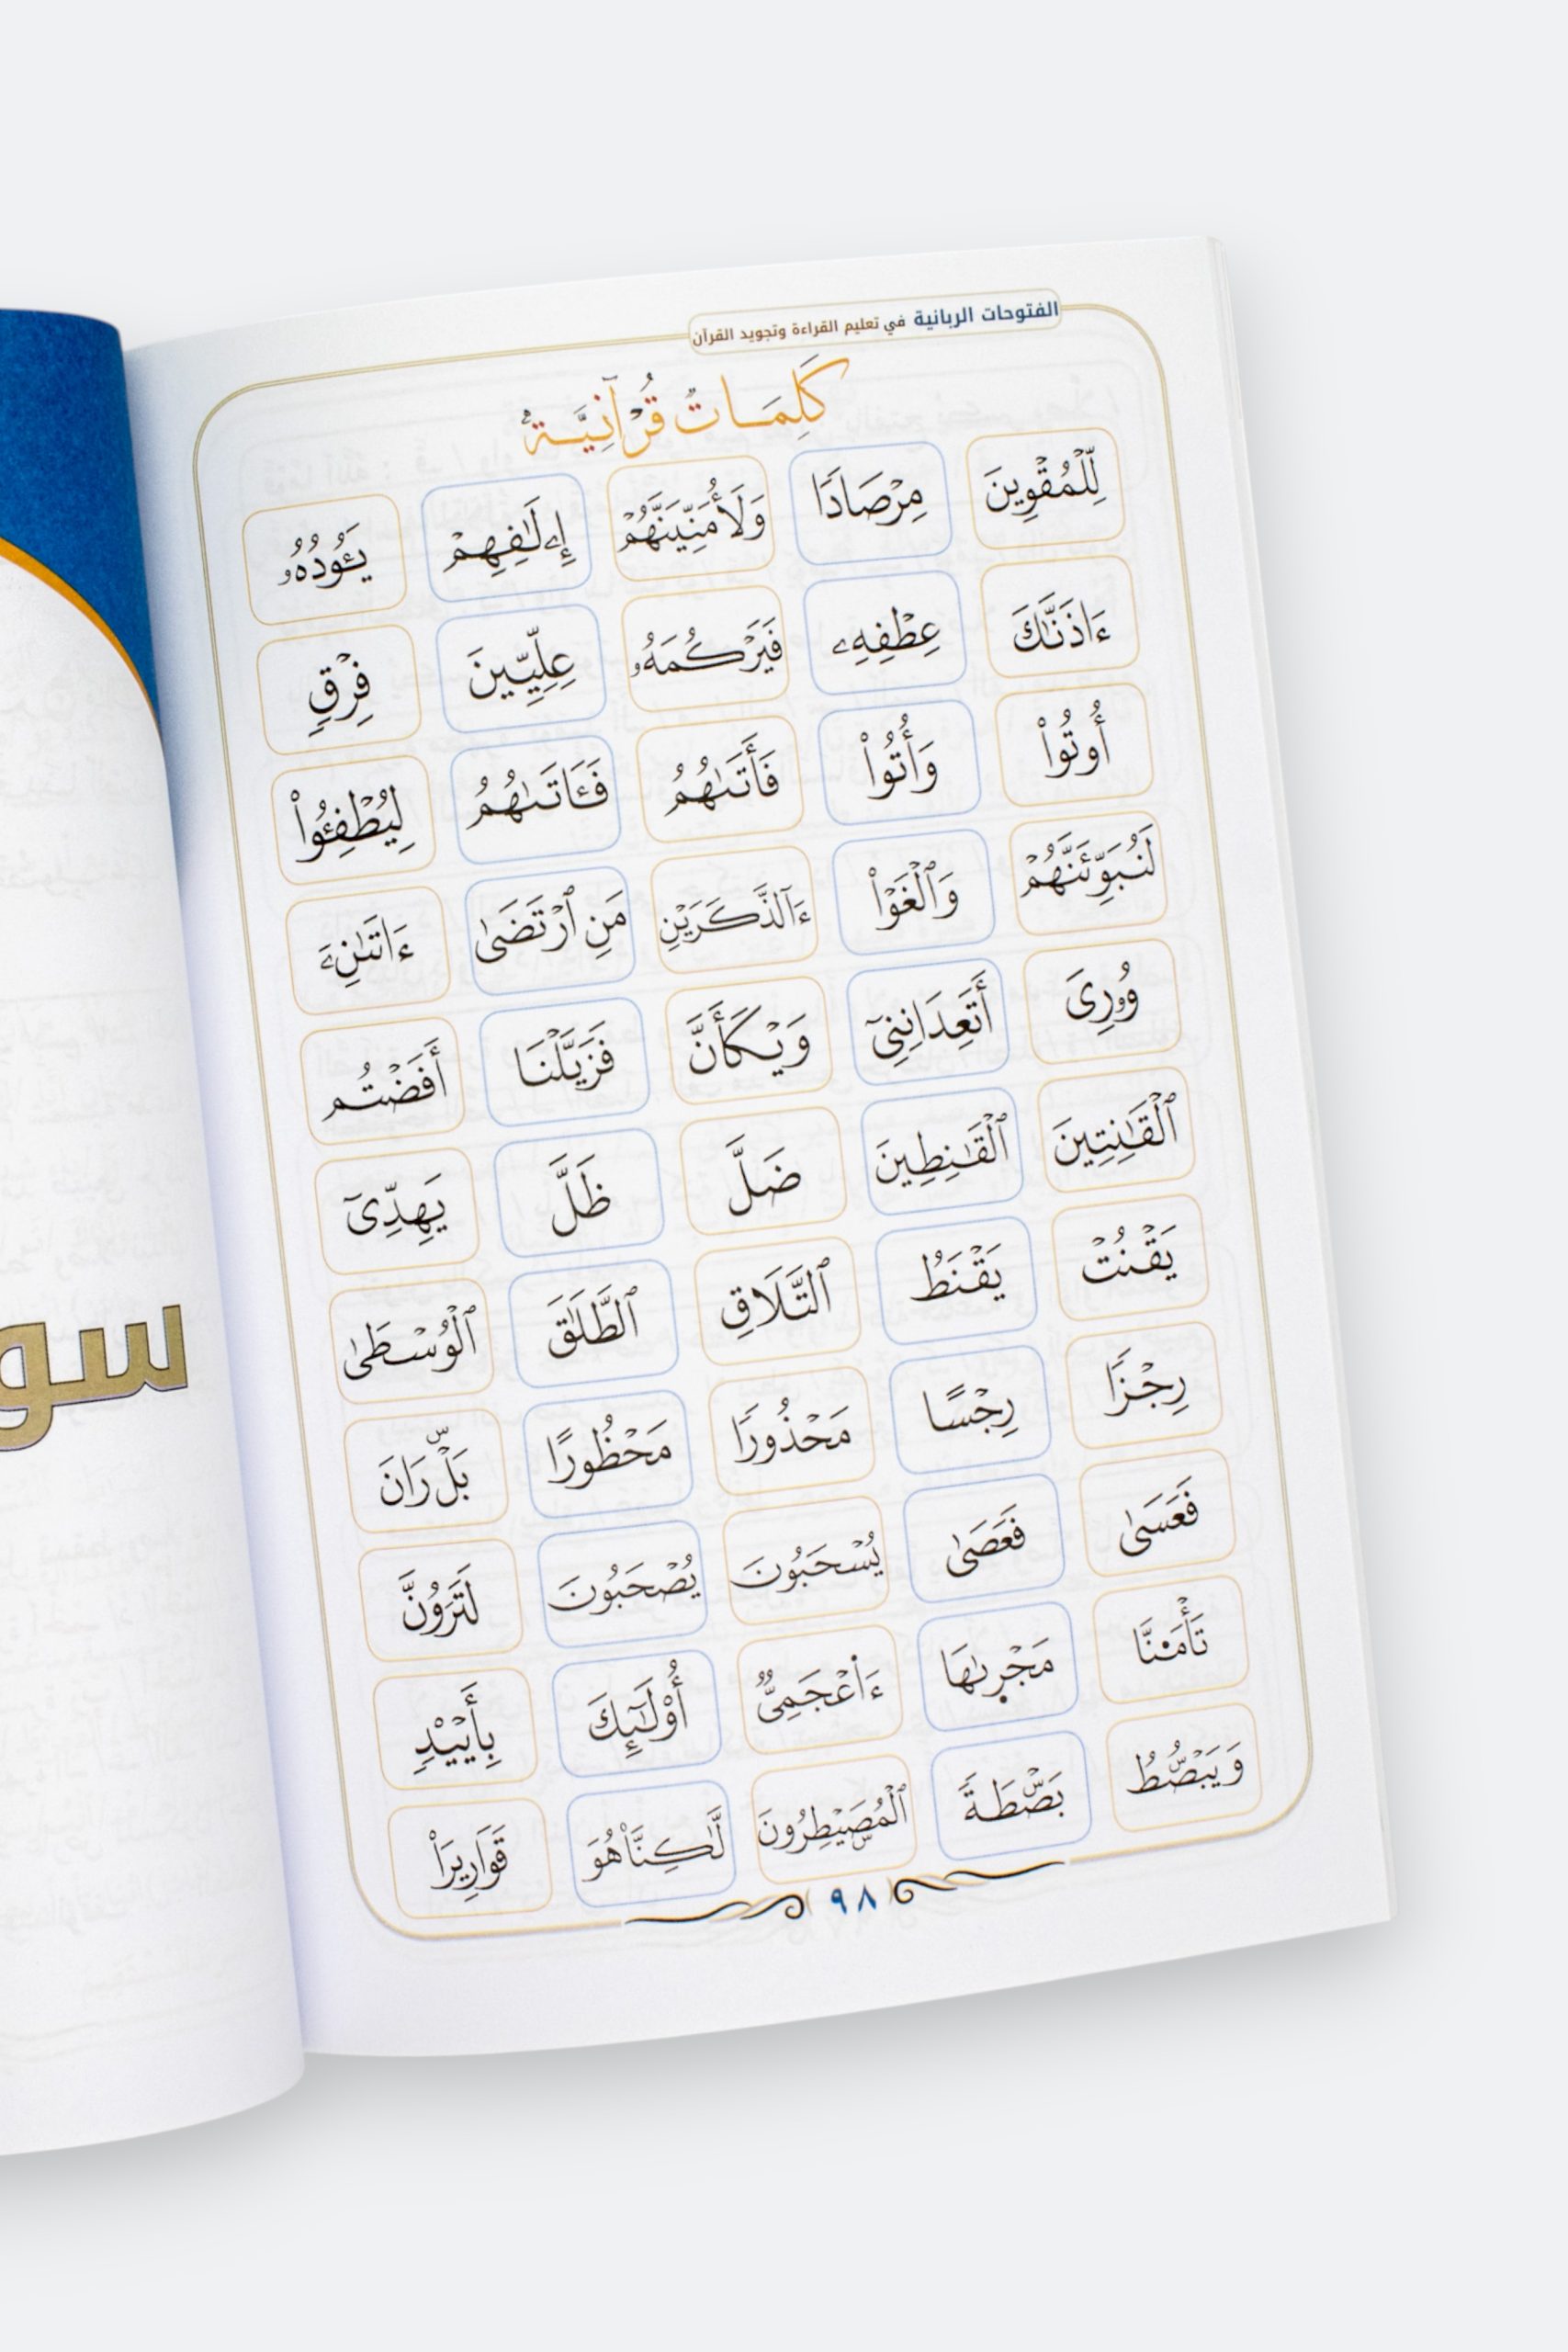 الفتوحات الربانية في تعليم القراءة وتجويد القرآن
كَلِمَاتٌ قُرْآنِيَّةٌ
لِّلْمُقْوِينَ مِرْصَادًا وَلَأُمَنِّيَنَّهُمْ إِۦلَٰفِهِمْ يَـُٔودُهُۥ
ءَاذَنَّٰكَ عِطْفِهِۦ فَيَرْكُمَهُۥ عِلِّيِّينَ فِرْقٍ
أُوتُوا۟ وَأُتُوا۟ فَأَتَىٰهُمُ فَـَٔاتَىٰهُمُ لِيُطْفِـُٔوا۟
لَنُبَوِّئَنَّهُمْ وَٱلْغَوْا۟ ءَآلذَّكَرَيْنِ مَنِ ٱرْتَضَىٰ ءَاتَىٰنِۦَ
وُۥرِىَ أَتَعِدَانِنِىٓ وَيْكَأَنَّ فَزَيَّلْنَا أَفَضْتُم
ٱلْقَٰنِتِينَ ٱلْقَٰنِطِينَ ضَلَّ ظَلَّ يَهِدِّىٓ
يَقْنُتْ يَقْنَطُ ٱلتَّلَاقِ ٱلطَّلَٰقَ ٱلْوُسْطَىٰ
رِجْزًا رِجْسًا مَحْذُورًا مَحْظُورًا بَلْۜ رَانَ
فَعَسَىٰ فَعَصَىٰ يُسْحَبُونَ يُصْحَبُونَ لَتَرَوُنَّ
تَأْمَ۫نَّا مَجْر۪ىٰهَا ءَا۬عْجَمِىٌّ أُو۟لَٰٓئِكَ بِأَيْي۟دٍ
وَيَبْصُۜطُ بَصْۜطَةً ٱلْمُصَۣيْطِرُونَ لَّٰكِنَّا۠ هُوَ قَوَارِيرَا۟
٩٨
سو